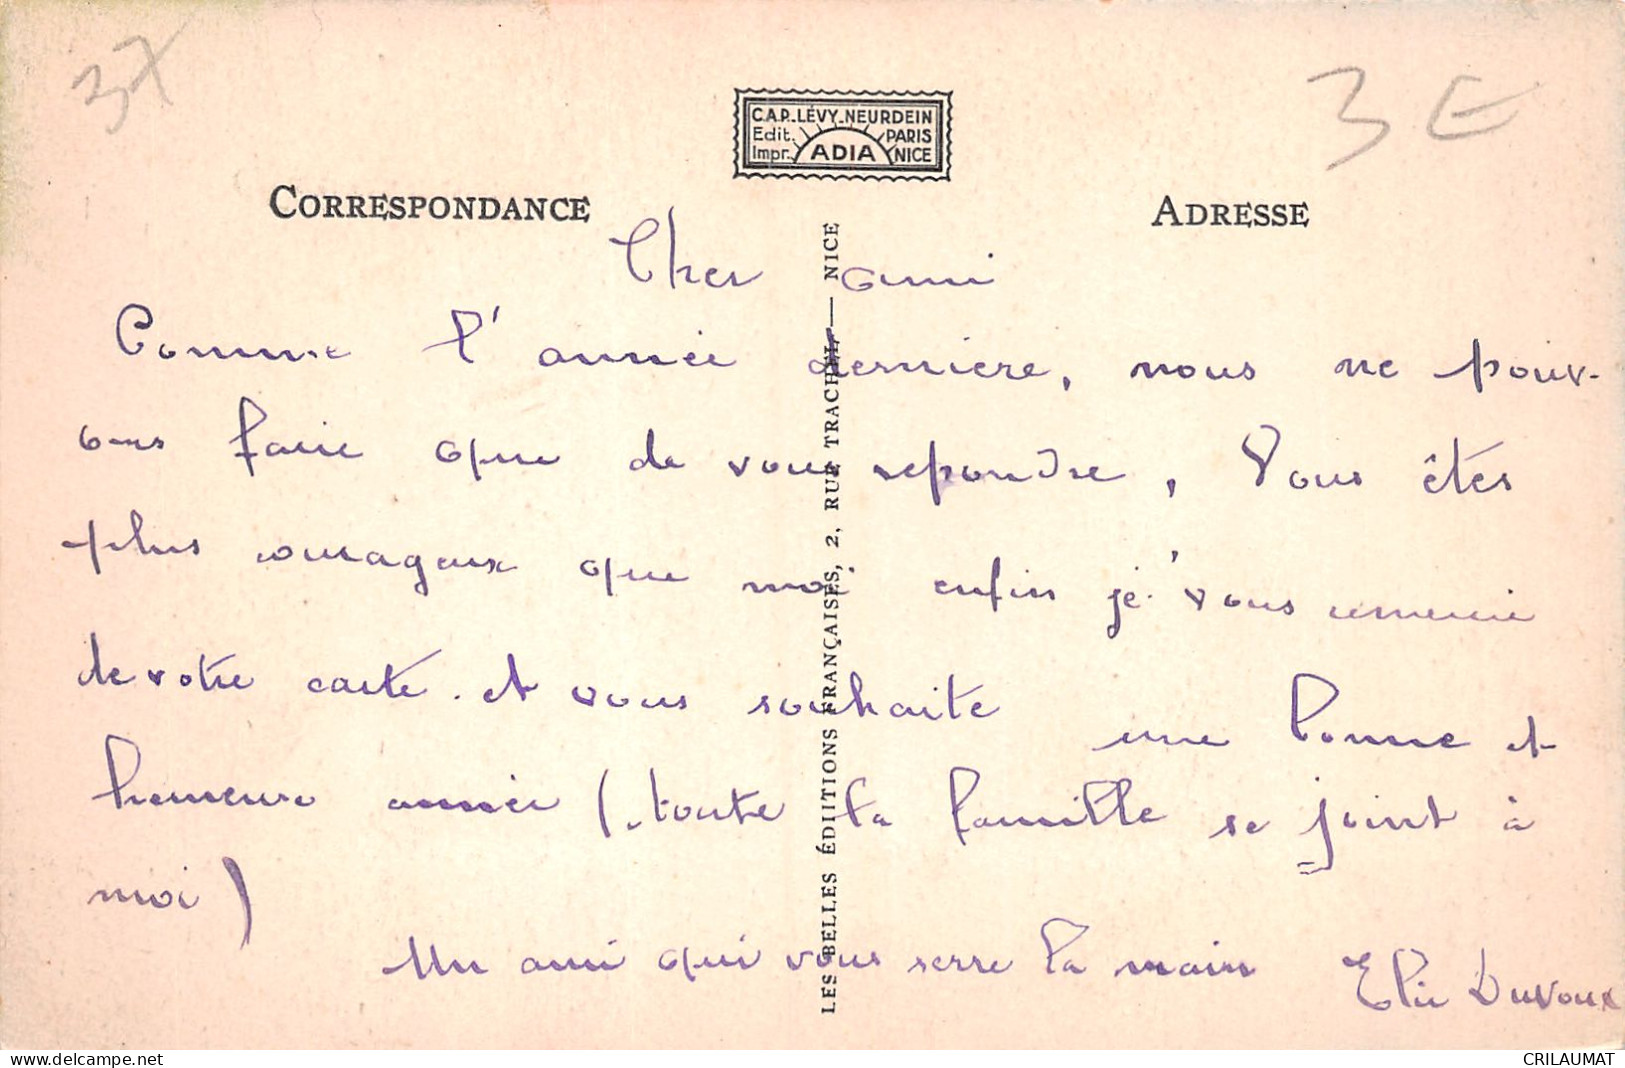 3X
3 E
C.A.P. LÉVY_NEURDEIN
Edit. PARIS
Impr. ADIA NICE
CORRESPONDANCE
ADRESSE
Cher ami
Comme l'année derniere, nous ne pouv-
ons faire que de vous repondre, Vous êtes
plus courageux que moi enfin je vous remercie
de votre carte. et vous souhaite une bonne et
heureuse année (toute la famille se joint à
moi)
Un ami qui vous serre la main Elie Duvoux
LES BELLES ÉDIITIONS FRANÇAISES, 2, RUE TRACHEL — NICE
delcampe.net
CRILAUMAT